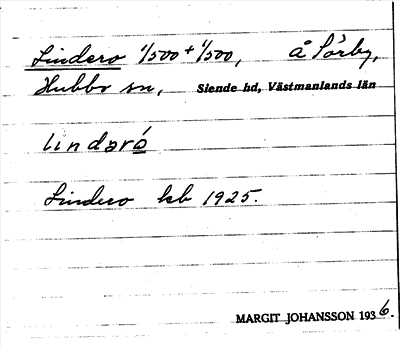 Lindero 1/500 + 1/500, å Sörby,
Hubbo sn, Siende hd, Västmanlands län
lındəró
Lindero kb 1925.
MARGIT JOHANSSON 1936.